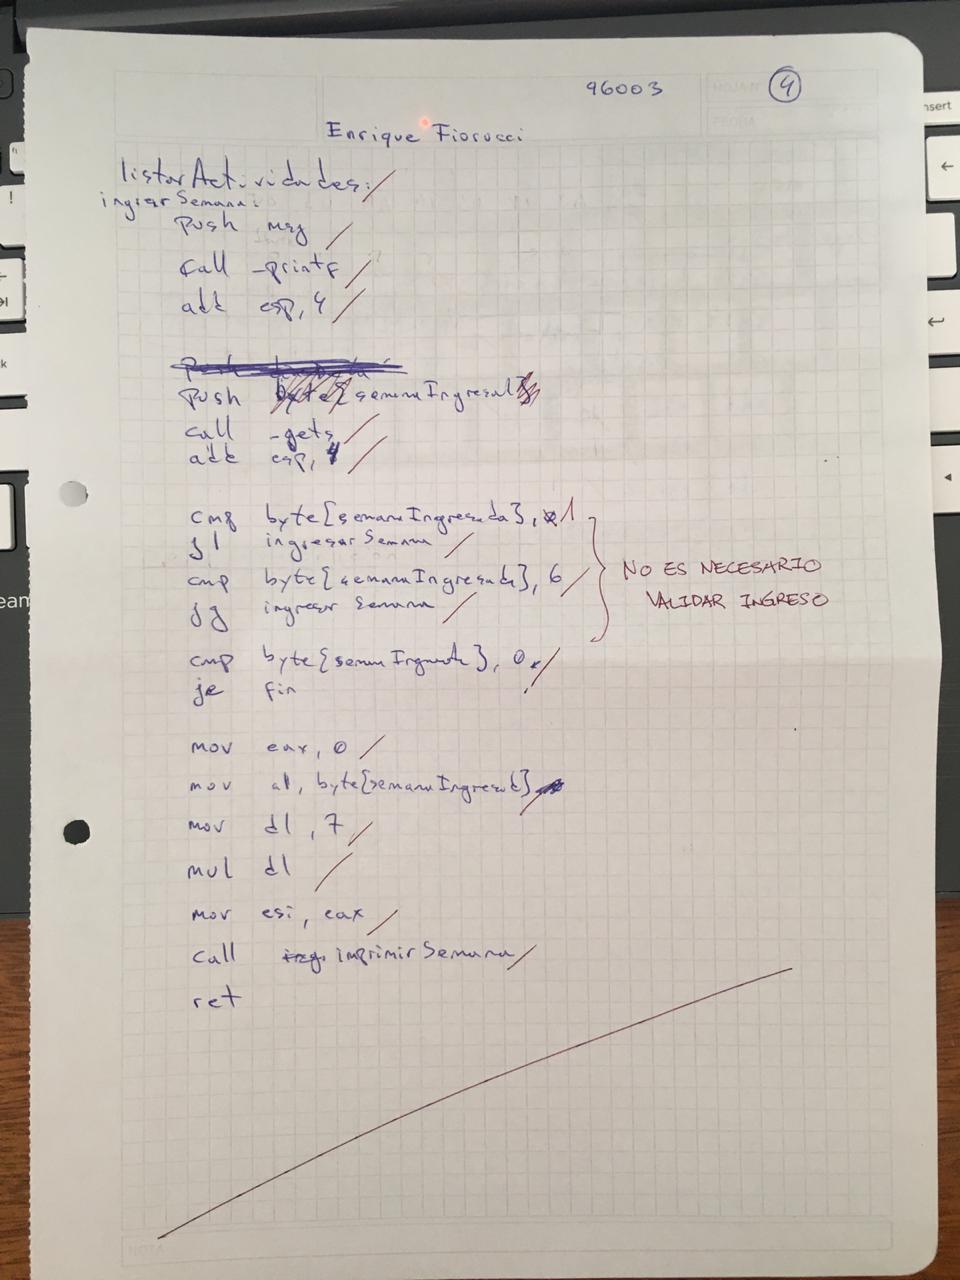 96003 4
Enrique Fiorucci
listarActividades:
ingresarSemana:
push msg
call _printf
add esp, 4
push semanaIngresad
call _gets
add esp, 4
cmp byte[semanaIngresada], 1
jl ingresarSemana
cmp byte[semanaIngresada], 6
jg ingresarSemana
NO ES NECESARIO
VALIDAR INGRESO
cmp byte[ ], 0
je fin
mov eax, 0
mov al, byte[ ]
mov dl, 7
mul dl
mov esi, eax
call imprimirSemana
ret
NOTA
insert